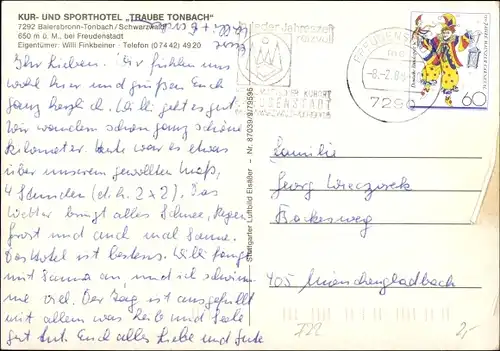 KUR- UND SPORTHOTEL „TRAUBE TONBACH"
7292 Baiersbronn-Tonbach/Schwarzwald
650 m ü. M., bei Freudenstadt
Eigentümer: Willi Finkbeiner · Telefon (0 74 42) 49 20
Ihr Lieben. Wir fühlen uns
wohl hier und grüßen Euch
ganz herzlich. Willi geht es gut.
Wir wandern schon ganz schöne
Kilometer. Heute war es etwas
über unserem gewollten Maß,
4 Stunden (d.h. 2 x 2). Das
Wetter bringt alles Schnee, Regen
Frost und auch mal Sonne.
Das Hotel ist bestens. Willi fängt
mit Sauna an und ich schwimme
viel. Der Tag ist ausgefüllt
mit allem was Leib und Seele
gut tut. Euch alles Liebe und Gute
Stuttgarter Luftbild Elsäßer – Nr. 87039/8/79595
zu jeder Jahreszeit
reizvoll
KURORT
FREUDENSTADT
FREUDENSTADT
7290
60
Familie
Georg Wieczorek
405 Mönchengladbach
722
2,-